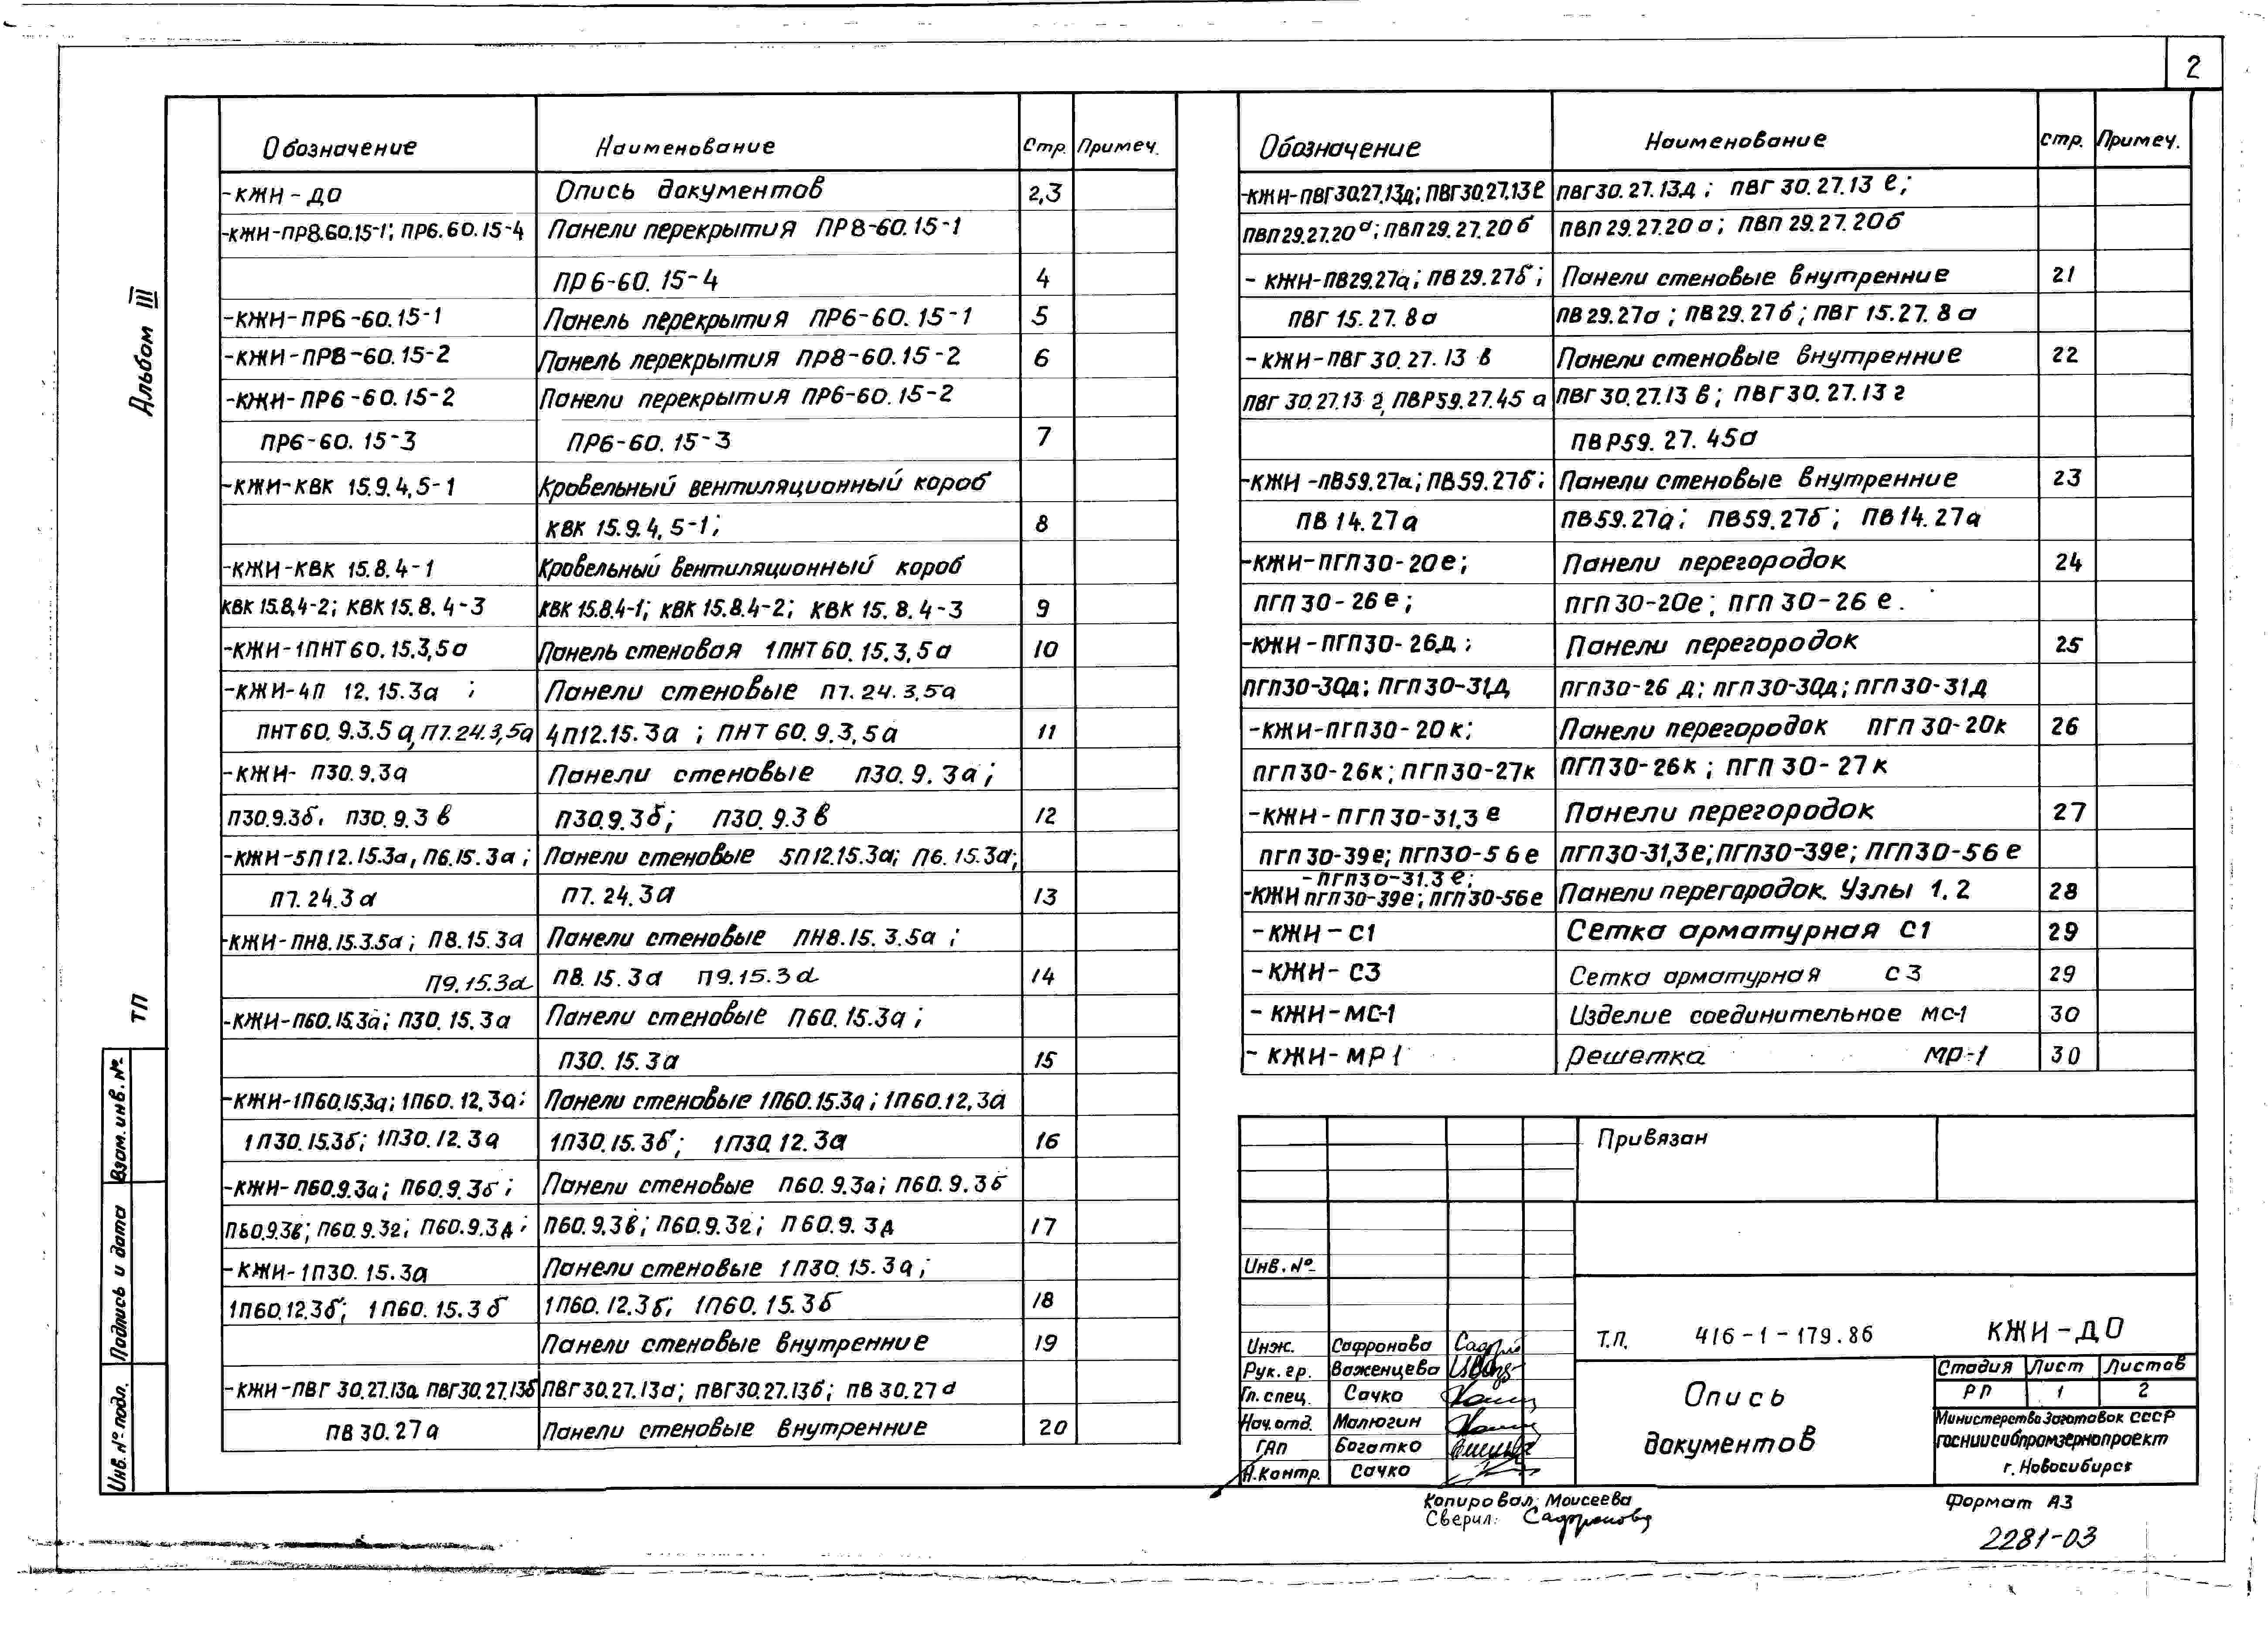 2
Альбом III
ТП
Взам. инв. №
Подпись и дата
Инв. № подл.
Обозначение Наименование Стр. Примеч.
-КЖИ-ДО Опись документов 2,3
-КЖИ-ПР8.60.15-1; ПР6.60.15-4 Панели перекрытия ПР8-60.15-1
ПР6-60.15-4 4
-КЖИ-ПР6-60.15-1 Панель перекрытия ПР6-60.15-1 5
-КЖИ-ПР8-60.15-2 Панель перекрытия ПР8-60.15-2 6
-КЖИ-ПР6-60.15-2 Панели перекрытия ПР6-60.15-2
ПР6-60.15-3 ПР6-60.15-3 7
-КЖИ-КВК 15.9.4,5-1 Кровельный вентиляционный короб
КВК 15.9.4,5-1; 8
-КЖИ-КВК 15.8.4-1 Кровельный вентиляционный короб
КВК 15.8,4-2; КВК 15.8.4-3 КВК 15.8.4-1; КВК 15.8.4-2; КВК 15.8.4-3 9
-КЖИ-1ПНТ60.15.3,5а Панель стеновая 1ПНТ60.15.3,5а 10
-КЖИ-4П 12.15.3а ; Панели стеновые П7.24.3,5а
ПНТ60.9.3.5а, П7.24.3,5а 4П12.15.3а ; ПНТ 60.9.3,5а 11
-КЖИ- П30.9.3а Панели стеновые П30.9.3а;
П30.9.3б, П30.9.3в П30.9.3б; П30.9.3в 12
-КЖИ-5П12.15.3а, П6.15.3а; Панели стеновые 5П12.15.3а; П6.15.3а;
П7.24.3а П7.24.3а 13
-КЖИ-ПН8.15.3.5а; П8.15.3а Панели стеновые ПН8.15.3.5а ;
П9.15.3а П8.15.3а П9.15.3а 14
-КЖИ-П60.15.3а; П30.15.3а Панели стеновые П60.15.3а;
П30.15.3а 15
-КЖИ-1П60.15.3а; 1П60.12,3а; Панели стеновые 1П60.15.3а; 1П60.12,3а
1П30.15.3б; 1П30.12.3а 1П30.15.3б; 1П30.12.3а 16
-КЖИ-П60.9.3а; П60.9.3б; Панели стеновые П60.9.3а; П60.9.3б
П60.9.3в; П60.9.3г; П60.9.3д; П60.9,3в; П60.9.3г; П60.9.3д 17
-КЖИ-1П30.15.3а Панели стеновые 1П30.15.3а;
1П60.12.3б; 1П60.15.3б 1П60.12.3б; 1П60.15.3б 18
Панели стеновые внутренние 19
-КЖИ-ПВГ 30.27.13а ПВГ30.27.13б ПВГ30.27.13а; ПВГ30.27.13б; ПВ 30.27а
ПВ 30.27а Панели стеновые внутренние 20
Обозначение Наименование стр. Примеч.
-КЖИ-ПВГ30.27.13д; ПВГ30.27.13е ПВГ30.27.13д; ПВГ 30.27.13е;
ПВП29.27.20а; ПВП29.27.20б ПВП 29.27.20а; ПВП 29.27.20б
- КЖИ-ПВ29.27а; ПВ29.27б; Панели стеновые внутренние 21
ПВГ 15.27.8а ПВ29.27а ; ПВ29.27б; ПВГ 15.27.8а
- КЖИ-ПВГ 30.27.13 в Панели стеновые внутренние 22
ПВГ 30.27.13 г, ПВР59.27.45а ПВГ30.27.13 в; ПВГ30.27.13 г
ПВР59.27.45а
-КЖИ-ПВ59.27а; ПВ59.27б; Панели стеновые внутренние 23
ПВ 14.27а ПВ59.27а; ПВ59.27б; ПВ14.27а
-КЖИ-ПГП30-20е; Панели перегородок 24
ПГП 30-26е; ПГП30-20е; ПГП 30-26 е.
-КЖИ-ПГП30-26д; Панели перегородок 25
ПГП30-30д; ПГП30-31д ПГП30-26 д; ПГП30-30д; ПГП30-31д
-КЖИ-ПГП30-20к; Панели перегородок ПГП 30-20к 26
ПГП30-26к; ПГП30-27к ПГП30-26к; ПГП 30-27к
-КЖИ-ПГП30-31,3е Панели перегородок 27
ПГП30-39е; ПГП30-56е ПГП30-31,3е; ПГП30-39е; ПГП30-56е
-ПГП30-31.3е;
-КЖИ ПГП30-39е; ПГП30-56е Панели перегородок. Узлы 1.2 28
-КЖИ-С1 Сетка арматурная С1 29
-КЖИ-С3 Сетка арматурная С3 29
-КЖИ-МС-1 Изделие соединительное МС-1 30
-КЖИ-МР1 Решетка МР-1 30
Привязан
Инв. №
Инж. Сафронова
Рук. гр. Важенцева
Гл. спец. Сачко
Нач. отд. Малюгин
ГАП Богатко
Н. контр. Сачко
Т.П. 416-1-179.86 КЖИ-ДО
Опись документов
Стадия Лист Листов
РП 1 2
Министерство Заготовок СССР
ГОСНИИСИБПРОМЗЕРНОПРОЕКТ
г. Новосибирск
Копировал: Моисеева
Сверил: Сафронова
Формат А3
2281-03